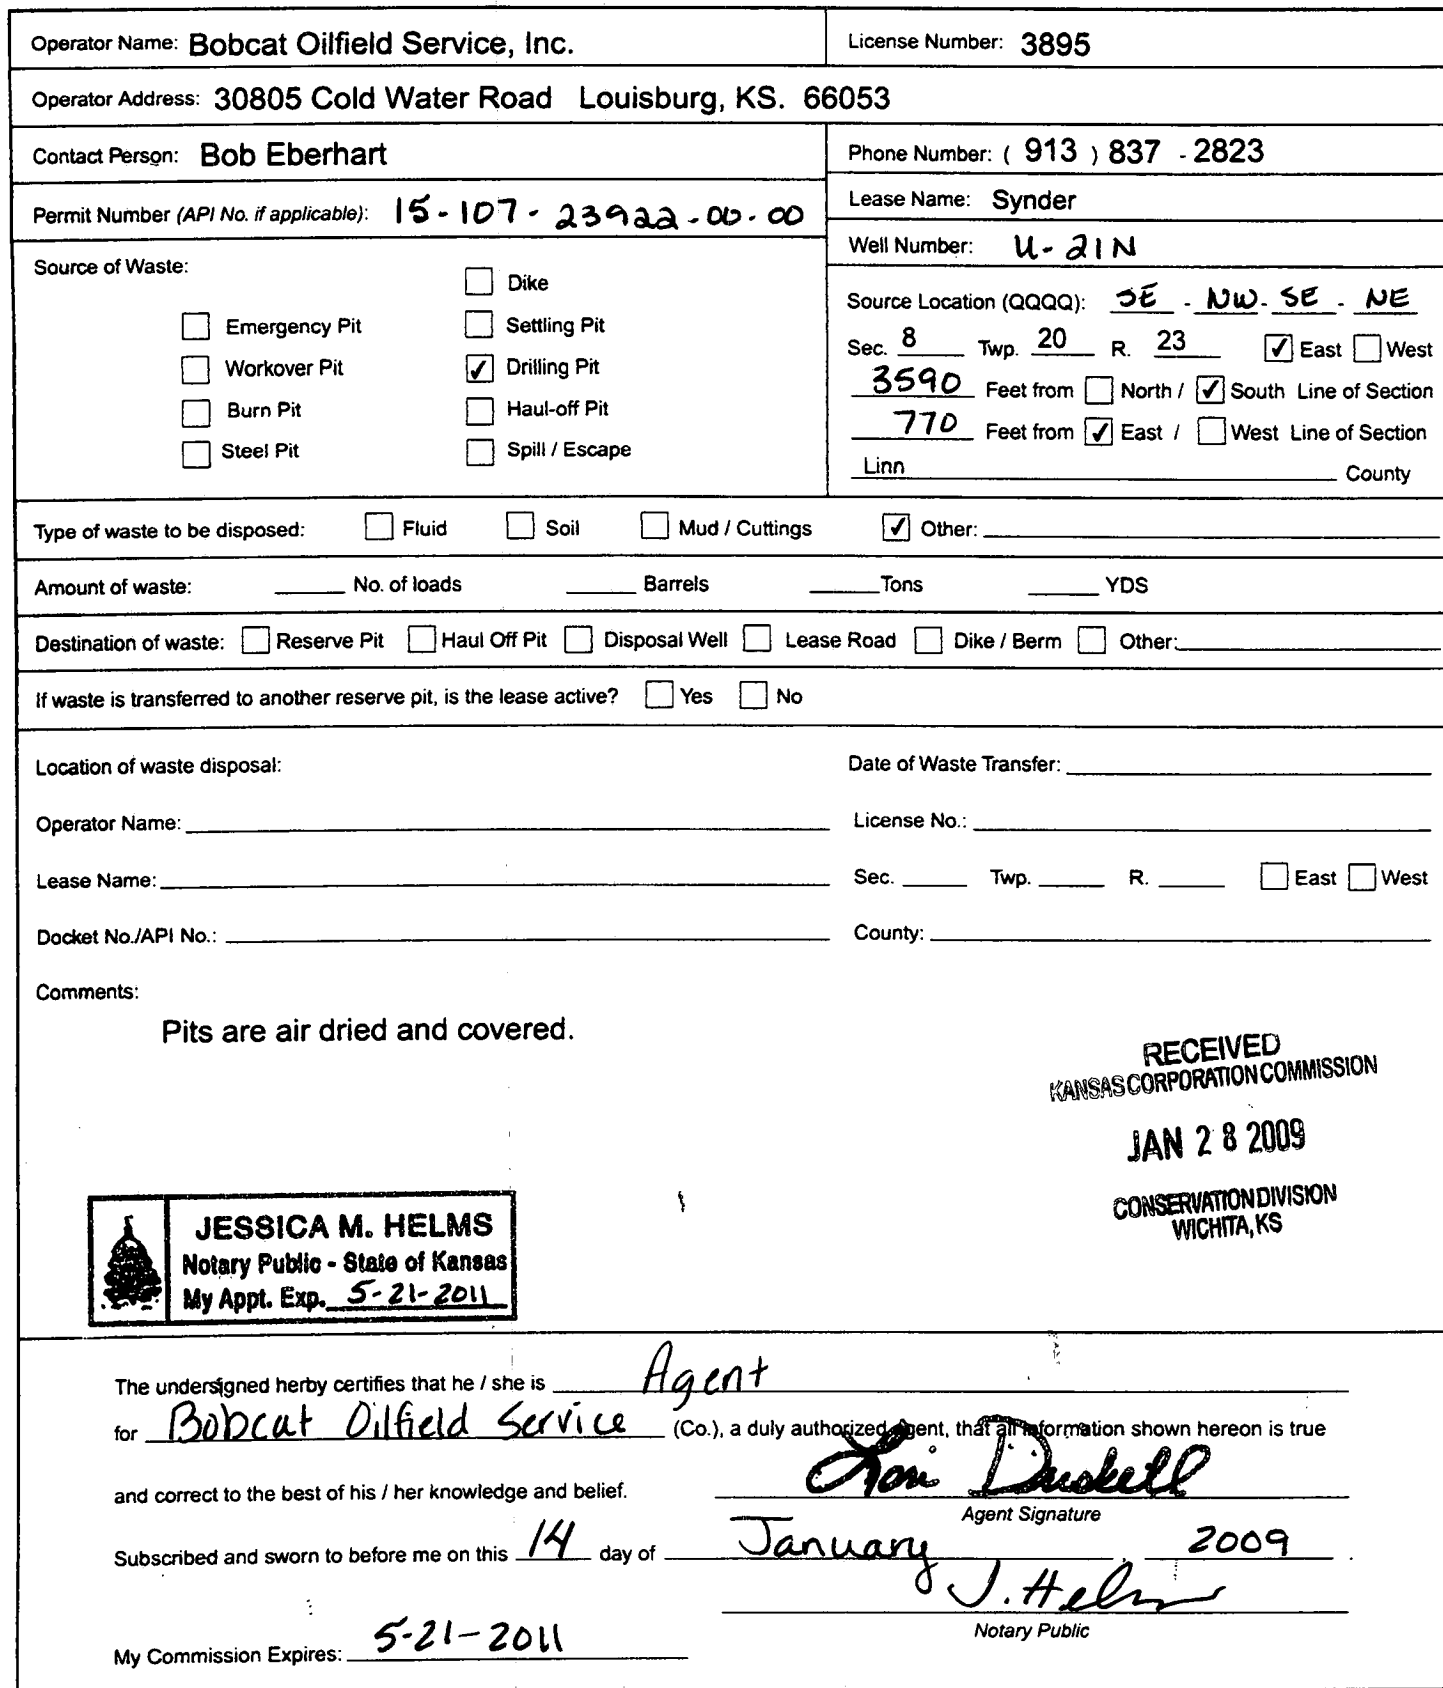 Operator Name: Bobcat Oilfield Service, Inc.
License Number: 3895
Operator Address: 30805 Cold Water Road Louisburg, KS. 66053
Contact Person: Bob Eberhart
Phone Number: ( 913 ) 837 - 2823
Permit Number (API No. if applicable): 15-107-23922-00-00
Lease Name: Synder
Well Number: U-21N
Source of Waste:
Dike
Emergency Pit
Settling Pit
Workover Pit
✓ Drilling Pit
Burn Pit
Haul-off Pit
Steel Pit
Spill / Escape
Source Location (QQQQ): SE - NW - SE - NE
Sec. 8 Twp. 20 R. 23 ✓ East West
3590 Feet from North / ✓ South Line of Section
770 Feet from ✓ East / West Line of Section
Linn County
Type of waste to be disposed: Fluid Soil Mud / Cuttings ✓ Other:
Amount of waste: No. of loads Barrels Tons YDS
Destination of waste: Reserve Pit Haul Off Pit Disposal Well Lease Road Dike / Berm Other:
If waste is transferred to another reserve pit, is the lease active? Yes No
Location of waste disposal:
Date of Waste Transfer:
Operator Name:
License No.:
Lease Name:
Sec. Twp. R. East West
Docket No./API No.:
County:
Comments:
Pits are air dried and covered.
RECEIVED
KANSAS CORPORATION COMMISSION
JAN 28 2009
CONSERVATION DIVISION
WICHITA, KS
JESSICA M. HELMS
Notary Public - State of Kansas
My Appt. Exp. 5-21-2011
The undersigned herby certifies that he / she is Agent
for Bobcat Oilfield Service (Co.), a duly authorized agent, that all information shown hereon is true
and correct to the best of his / her knowledge and belief.
Lori
Agent Signature
Subscribed and sworn to before me on this 14 day of January , 2009 .
J. Helms
Notary Public
My Commission Expires: 5-21-2011